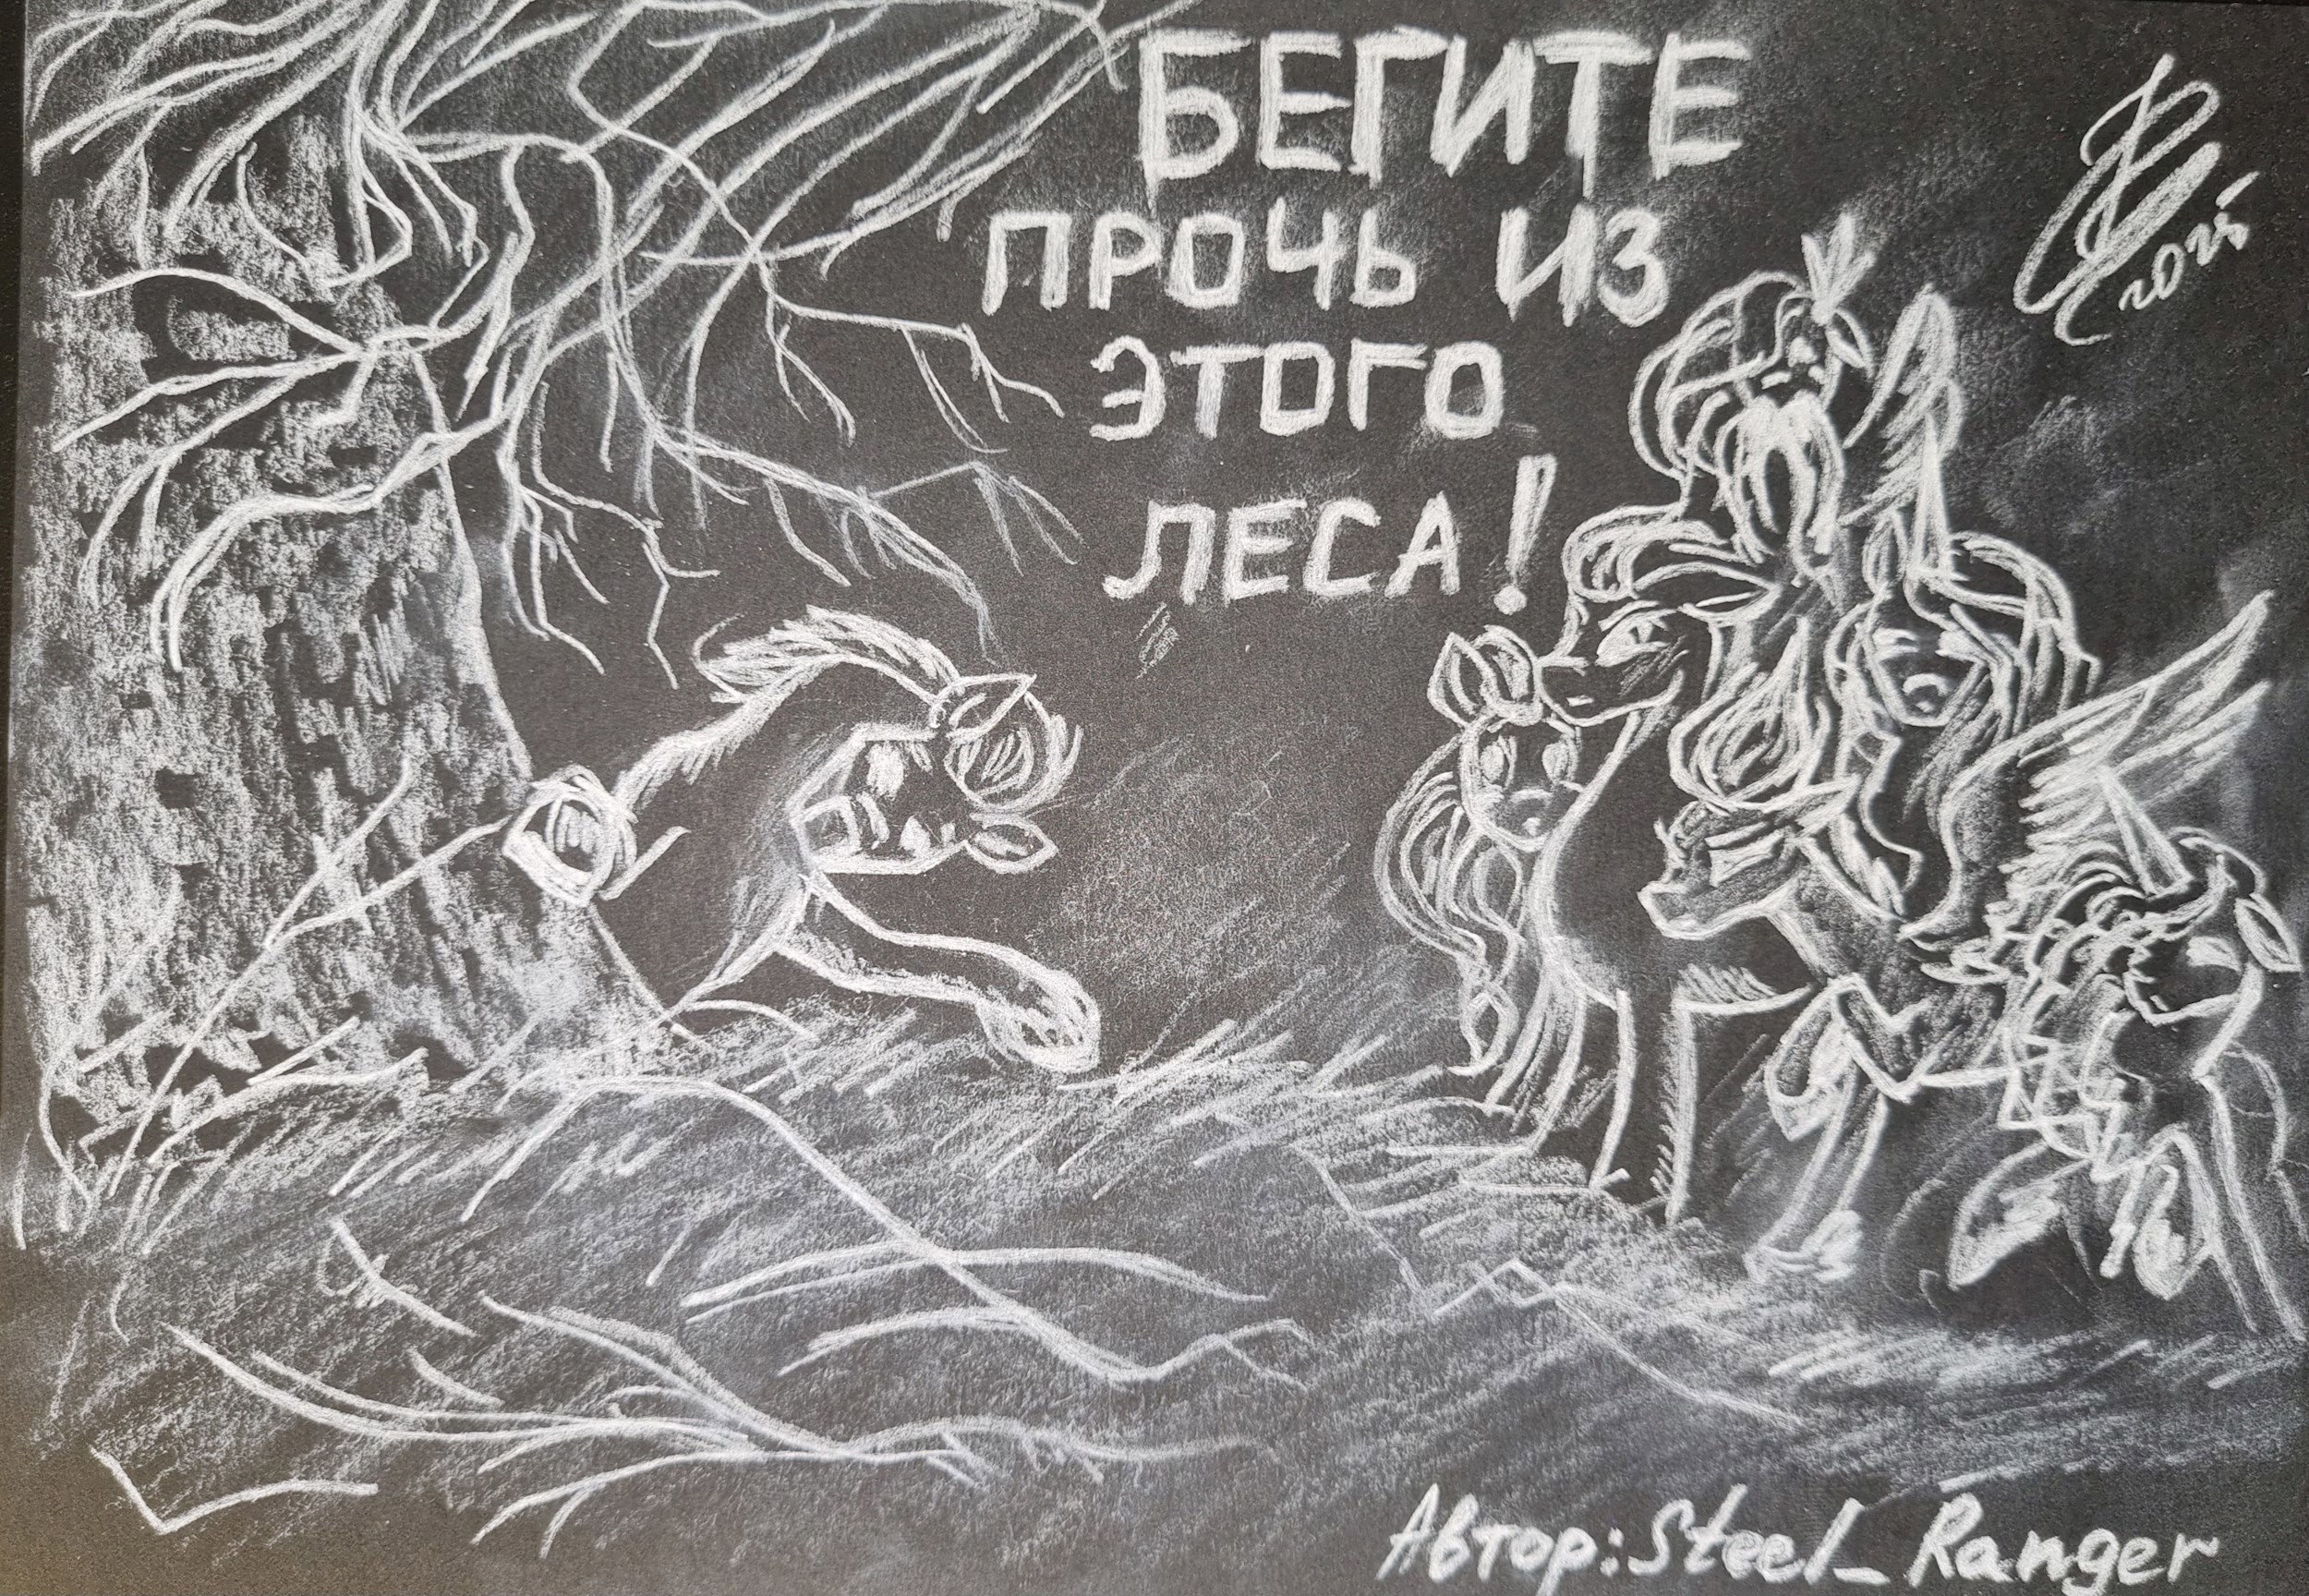 БЕГИТЕ
ПРОЧЬ ИЗ
ЭТОГО
ЛЕСА!
2025
Автор: Steel_Ranger